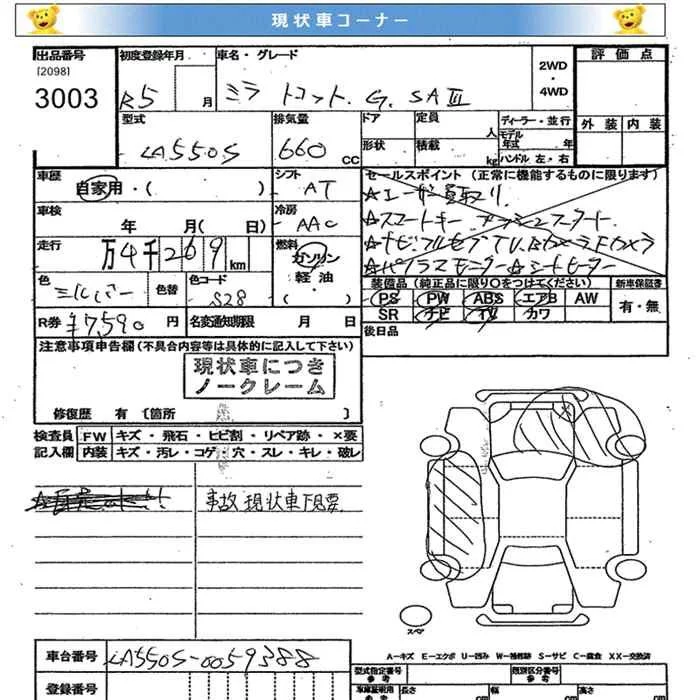 現状車コーナー
出品番号
[2098]
3003
初度登録年月
R5 月
車名・グレード
ミラ トコット G. SAⅢ
2WD
・
4WD
評価点
外装 内装
型式
LA550S
排気量
660 CC
ドア
形状
定員 人
積載 kg
ディーラー・並行
モデル年式 年
ハンドル 左・右
車歴
自家用・( )
シフト
AT
車検
年 月( 日)
冷房
AAC
走行
万4千269km
燃料
ガソリン
軽油
( )
色
シルバー
色替
色コード
S28
R券 ¥7,590 円
名変通知期限 月 日
セールスポイント (正常に機能するものに限ります)
☆エーガー買取り
☆スマートキー プッシュスタート
☆ナビ フルセグTV Bカメラ Fカメラ
☆パノラマモニター ☆シートヒーター
装備品 (純正品に限り○をつけてください)
新車保証書
PS PW ABS エアB AW
SR ナビ TV カワ
有・無
後日品
注意事項申告欄 (不具合内容等は具体的に記入して下さい)
現状車につき
ノークレーム
修復歴 有 〔箇所 〕
検査員
記入欄
FW キズ・飛石・ヒビ割・リペア跡・×要
内装 キズ・汚レ・コゲ・穴・スレ・キレ・破レ
事故現状車下見要
スペア
A－キズ E－エクボ U－凹み W－補修跡 S－サビ C－腐食 XX－交換済
車台番号 LA550S-0059388
登録番号
型式指定番号
参考
類別区分番号
参考
車庫証明用
参考
長さ cm
幅 cm
高さ cm